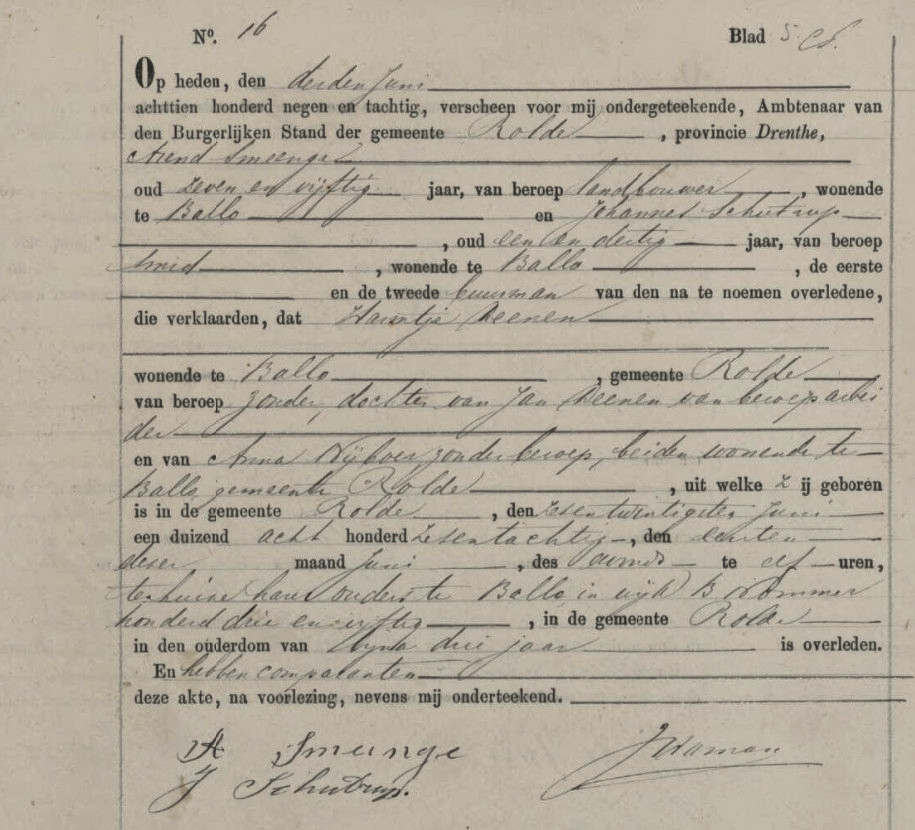 No. 16 Blad 5
Op heden, den derden Juni
achttien honderd negen en tachtig, verscheen voor mij ondergeteekende, Ambtenaar van
den Burgerlijken Stand der gemeente Rolde, provincie Drenthe,
Arend Smeenge
oud zeven en vijftig jaar, van beroep landbouwer, wonende
te Ballo en Johannes Schutrup
, oud een en dertig jaar, van beroep
smid, wonende te Ballo, de eerste
en de tweede buurman van den na te noemen overledene,
die verklaarden, dat Harmtje
wonende te Ballo, gemeente Rolde
van beroep zonder, dochter van Jan van beroep arbei
der
en van Anna Nijboer zonder beroep, beiden wonende te
Ballo, gemeente Rolde, uit welke zij geboren
is in de gemeente Rolde, den zesentwintigsten Juni
een duizend acht honderd zesentachtig, den eersten
dezer, maand Juni, des avonds te elf uren,
ten huize harer ouders te Ballo, in wijk B nommer
honderd drie en vijftig, in de gemeente Rolde
in den ouderdom van bijna drie jaar is overleden.
En hebben comparanten
deze akte, na voorlezing, nevens mij onderteekend.
A Smeenge
J Schutrup.